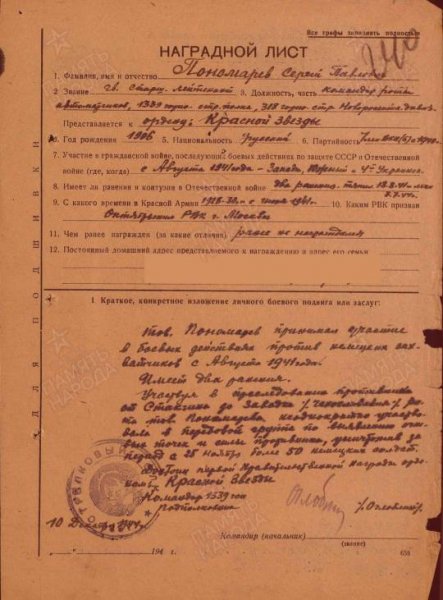 Все графы заполнять полностью
НАГРАДНОЙ ЛИСТ
1. Фамилия, имя и отчество Пономарев Сергей Павлович
2. Звание гв. старш. лейтенант 3. Должность, часть командир роты
автоматчиков, 1339 горно-стр. полка, 318 горно-стр. Новороссийск. дивиз.
Представляется к ордену: Красной Звезды
5. Год рождения 1906 5. Национальность русский 6. Партийность
7. Участие в гражданской войне, последующих боевых действиях по защите СССР и Отечественной
войне (где, когда) с Августа 1941 года - Запад, Южный и 4й Украинск
8. Имеет ли ранения и контузии в Отечественной войне два ранения
9. С какого времени в Красной Армии 10. Каким РВК призван
Октябрьским РВК г. Москвы
11. Чем ранее награжден (за какие отличия) ранее не награждался
12. Постоянный домашний адрес представляемого к награждению и адрес его семьи
ДЛЯ ПОДШИВКИ
I. Краткое, конкретное изложение личного боевого подвига или заслуг:
тов. Пономарев принимал участие
в боевых действиях против немецких зах-
ватчиков с Августа 1941 года.
Имеет два ранения.
Участвуя в преследовании противника
от до /Чехословакия/
тов. Пономарев неоднократно участво-
вал в передовой группе по выявлению огне-
вых точек и силы противника, уничтожив за
период с 25 Ноября более 50 немецких солдат.
Достоин первой Правительственной Награды орде-
на, Красной Звезды
Командир 1339 гсп
Подполковник
10 Декабря 1944
194 г.
Командир (начальник)
(звание)